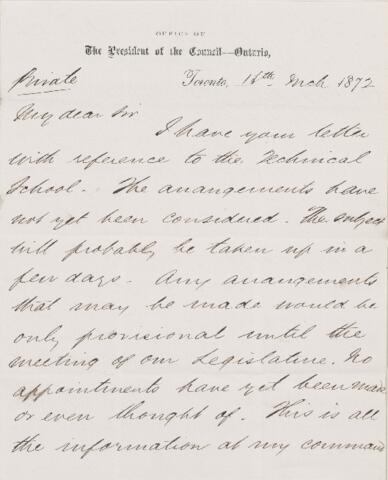 OFFICE OF
The President of the Council—Ontario,
Private Toronto, 15th Mch 1872
My dear Sir
I have your letter
with reference to the Technical
School. The arrangements have
not yet been considered. The subject
will probably be taken up in a
few days. Any arrangements
that may be made would be
only provisional until the
meeting of our Legislature. No
appointments have yet been made
or even thought of. This is all
the information at my command